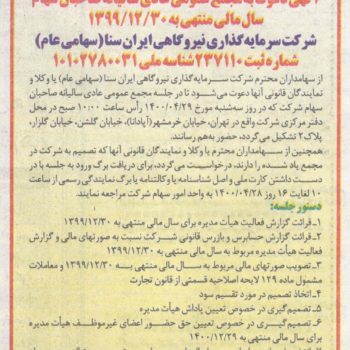 آگهی دعوت به مجمع عمومی عادی سالیانه صاحبان سهام
سال مالی منتهی به ۱۳۹۹/۱۲/۳۰
شرکت سرمایه گذاری نیروگاهی ایران سنا (سهامی عام)
شماره ثبت ۲۳۷۱۱۰ شناسه ملی ۱۰۱۰۲۷۸۰۰۳۱
از سهامداران محترم شرکت سرمایه‌گذاری نیروگاهی ایران سنا (سهامی عام) یا وکلا و
نمایندگان قانونی آنها دعوت می‌شود تا در جلسه مجمع عمومی عادی سالیانه صاحبان
سهام شرکت که در روز سه‌شنبه مورخ ۱۴۰۰/۰۴/۲۹ رأس ساعت ۱۰:۰۰ صبح در محل
دفتر مرکزی شرکت واقع در تهران، خیابان خرمشهر (آپادانا)، خیابان گلشن، خیابان گلزار،
پلاک ۲ تشکیل می‌گردد، حضور به‌هم رسانند.
همچنین از سهامداران محترم یا وکلا و نمایندگان قانونی آنها که تمایل به شرکت در
مجمع یاد شده را دارند، درخواست می‌گردد، برای دریافت برگ ورود به جلسه با در
دست داشتن کارت ملی و اصل شناسنامه یا وکالتنامه یا برگ نمایندگی رسمی از ساعت
۱۰ لغایت ۱۶ روز ۱۴۰۰/۰۴/۲۸ به واحد امور سهام شرکت مراجعه نمایند.
دستور جلسه:
۱-قرائت گزارش فعالیت هیأت مدیره برای سال مالی منتهی به ۱۳۹۹/۱۲/۳۰
۲-قرائت گزارش حسابرس و بازرس قانونی شرکت نسبت به صورتهای مالی و گزارش
فعالیت هیأت مدیره مربوط به سال مالی منتهی به ۱۳۹۹/۱۲/۳۰
۳-تصویب صورتهای مالی مربوط به سال مالی منتهی به ۱۳۹۹/۱۲/۳۰ و معاملات
مشمول ماده ۱۲۹ لایحه اصلاحیه قسمتی از قانون تجارت
۴-اتخاذ تصمیم در مورد تقسیم سود
۵-تصمیم‌گیری در خصوص تعیین پاداش هیأت مدیره
۶-تصمیم‌گیری در خصوص تعیین حق حضور اعضای غیرموظف هیأت مدیره برای
سال مالی منتهی به ۱۴۰۰/۱۲/۲۹